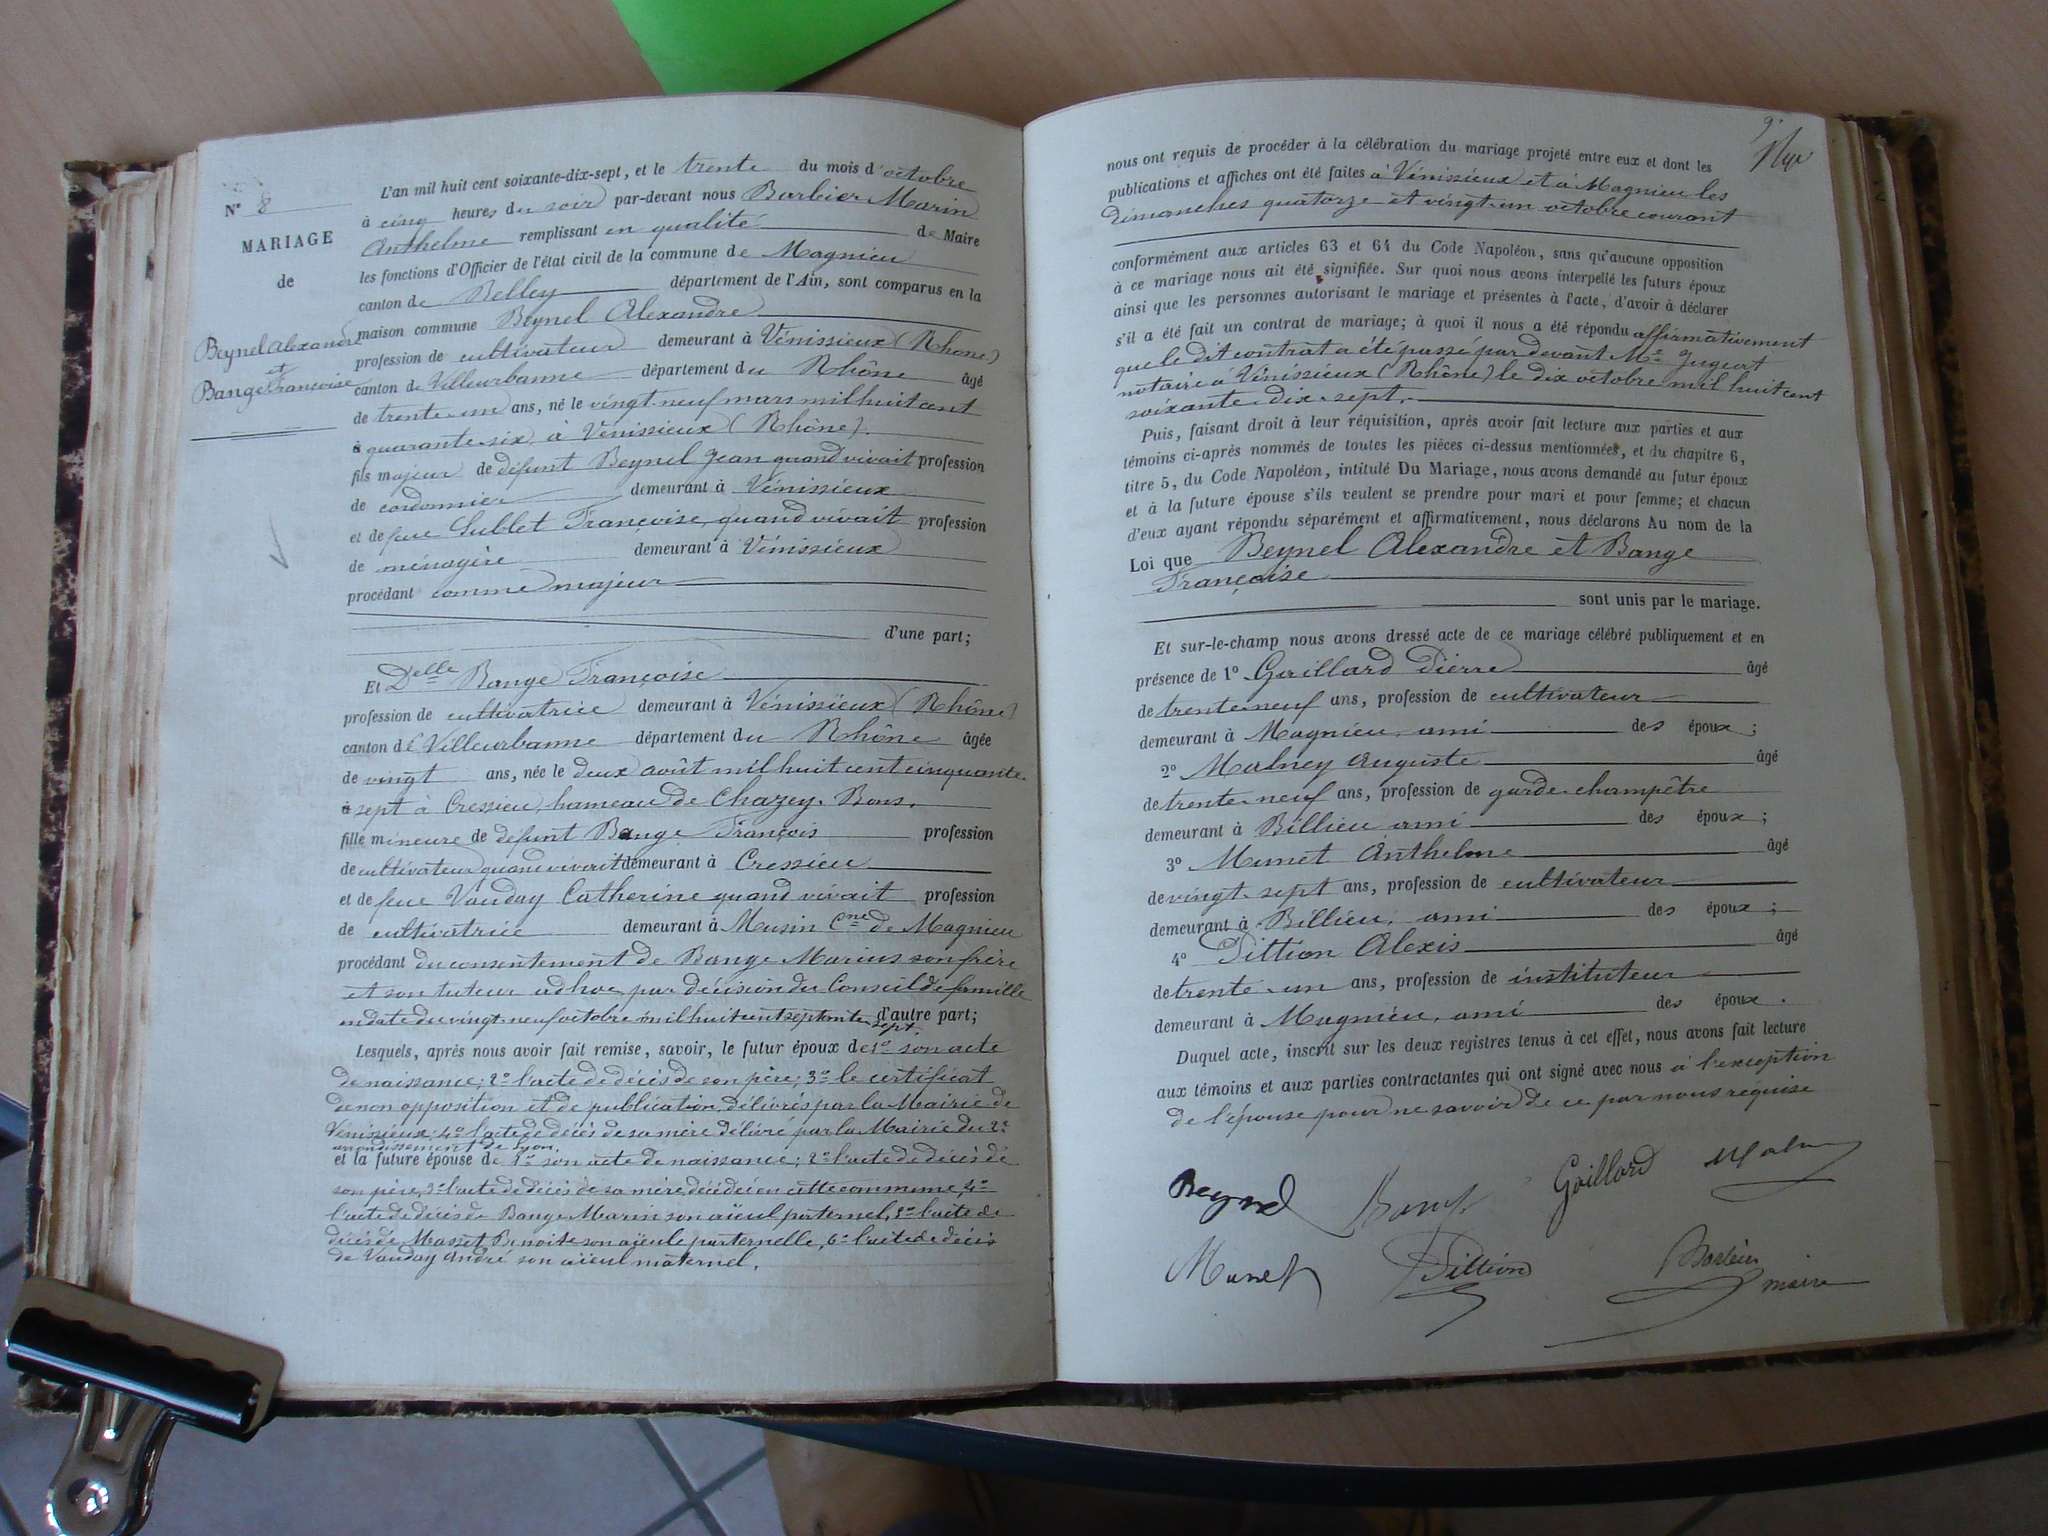 N° 8
MARIAGE
de
Beynel Alexandre
et
Bange Françoise
L'an mil huit cent soixante-dix-sept, et le trente du mois d'octobre
à cinq heures du soir par-devant nous Barbier Marin
Anthelme remplissant en qualité de Maire
les fonctions d'Officier de l'état civil de la commune de Magnieu
canton de Belley département de l'Ain, sont comparus en la
maison commune Beynel Alexandre
profession de cultivateur demeurant à Vénissieux (Rhône)
canton de Villeurbanne département du Rhône âgé
de trente-un ans, né le vingt-neuf mars mil huit cent
quarante-six à Vénissieux (Rhône).
fils majeur de défunt Beynel Jean quand vivait profession
de cordonnier demeurant à Vénissieux
et de feue Sublet Françoise quand vivait profession
de ménagère demeurant à Vénissieux
procédant comme majeur
d'une part;
Et Delle Bange Françoise
profession de cultivatrice demeurant à Vénissieux (Rhône)
canton de Villeurbanne département du Rhône âgée
de vingt ans, née le deux août mil huit cent cinquante-
sept à Cressieu, hameau de Chazey-Bons.
fille mineure de défunt Bange François profession
de cultivateur quand vivait demeurant à Cressieu
et de feue Vauday Catherine quand vivait profession
de cultivatrice demeurant à Musin Cne de Magnieu
procédant du consentement de Bange Marius son frère
et son tuteur adhoc par décision du Conseil de famille
en date du vingt-neuf octobre mil huit cent septante sept. d'autre part;
Lesquels, après nous avoir fait remise, savoir, le futur époux de 1° son acte
de naissance; 2° l'acte de décès de son père; 3° le certificat
de non opposition et de publication délivrés par la Mairie de
Vénissieux; 4° l'acte de décès de sa mère délivré par la Mairie du 2e
arrondissement de Lyon.
et la future épouse de 1° son acte de naissance; 2° l'acte de décès de
son père, 3° l'acte de décès de sa mère décédée en cette commune, 4°
l'acte de décès de Bange Marin son aïeul paternel, 5° l'acte de
décès de Masset Benoite son aïeule paternelle, 6° l'acte de décès
de Vauday André son aïeul maternel.
nous ont requis de procéder à la célébration du mariage projeté entre eux et dont les
publications et affiches ont été faites à Vénissieux et à Magnieu les
dimanches quatorze et vingt-un octobre courant
conformément aux articles 63 et 64 du Code Napoléon, sans qu'aucune opposition
à ce mariage nous ait été signifiée. Sur quoi nous avons interpellé les futurs époux
ainsi que les personnes autorisant le mariage et présentes à l'acte, d'avoir à déclarer
s'il a été fait un contrat de mariage; à quoi il nous a été répondu affirmativement
que le dit contrat a été passé par devant Me Jugeat
notaire à Vénissieux (Rhône) le dix octobre mil huit cent
soixante-dix-sept.
Puis, faisant droit à leur réquisition, après avoir fait lecture aux parties et aux
témoins ci-après nommés de toutes les pièces ci-dessus mentionnées, et du chapitre 6,
titre 5, du Code Napoléon, intitulé Du Mariage, nous avons demandé au futur époux
et à la future épouse s'ils veulent se prendre pour mari et pour femme; et chacun
d'eux ayant répondu séparément et affirmativement, nous déclarons Au nom de la
Loi que Beynel Alexandre et Bange
Françoise
sont unis par le mariage.
Et sur-le-champ nous avons dressé acte de ce mariage célébré publiquement et en
présence de 1° Gaillard Pierre âgé
de trente-neuf ans, profession de cultivateur
demeurant à Magnieu, ami des époux;
2° Malney Auguste âgé
de trente-neuf ans, profession de garde-champêtre
demeurant à Billieu ami des époux;
3° Munet Anthelme âgé
de vingt-sept ans, profession de cultivateur
demeurant à Billieu, ami des époux;
4° Dittion Alexis âgé
de trente-un ans, profession de instituteur
demeurant à Magnieu, ami des époux.
Duquel acte, inscrit sur les deux registres tenus à cet effet, nous avons fait lecture
aux témoins et aux parties contractantes qui ont signé avec nous à l'exception
de l'épouse pour ne savoir de ce par nous requise
Beynel Gaillard
Munet Dittion Barbier
maire